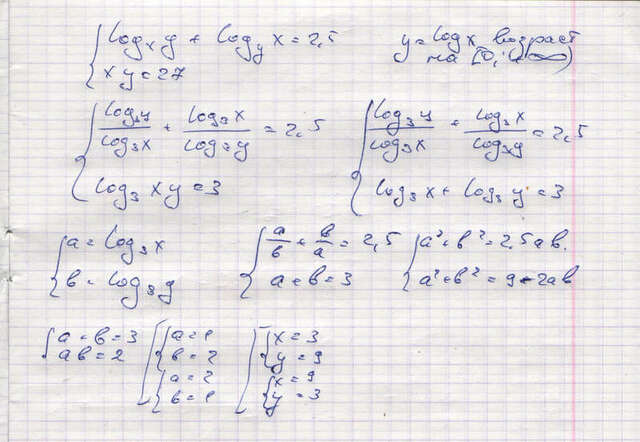 { logₓ y + log_y x = 2,5
xy = 27
y = log x возраст
на [0; +∞)
{ log₃y/log₃x + log₃x/log₃y = 2,5
log₃ xy = 3
{ log₃y/log₃x + log₃x/log₃y = 2,5
log₃x + log₃y = 3
{ a = log₃x
b = log₃y
{ a/b + b/a = 2,5
a + b = 3
{ a² + b² = 2,5ab.
a² + b² = 9 - 2ab
{ a + b = 3
ab = 2
[ { a = 1
b = 2
{ a = 2
b = 1
[ { x = 3
y = 9
{ x = 9
y = 3